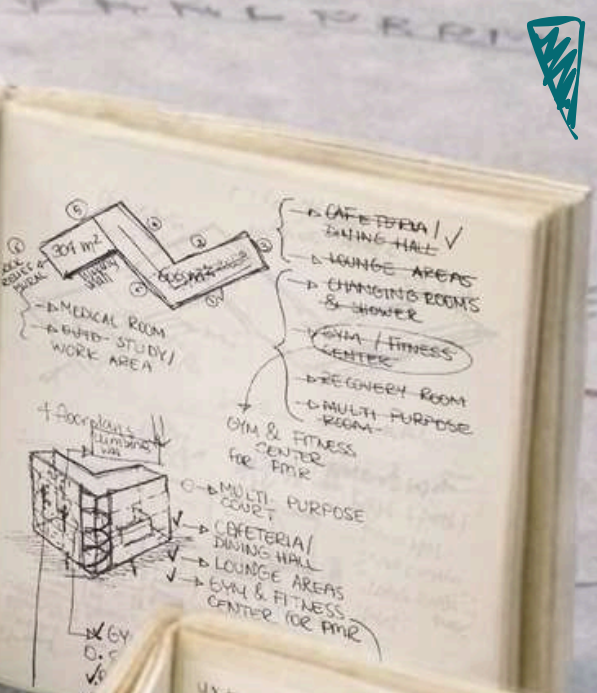 ⑤
④
②
③
①
⑥
704 m²
→ MEDICAL ROOM
→ STUDY/
WORK AREA
→ CAFETERIA/
DINING HALL ✓
→ LOUNGE AREAS
→ CHANGING ROOMS
& SHOWER
→ GYM / FITNESS
CENTER
→ RECOVERY ROOM
→ MULTI PURPOSE
ROOM
GYM & FITNESS
CENTER
FOR PMR
+ floorplans
○→ MULTI PURPOSE
COURT
✓→ CAFETERIA/
DINING HALL
✓→ LOUNGE AREAS
✓→ GYM & FITNESS
CENTER FOR PMR
GY